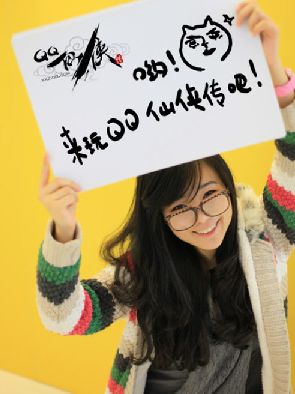 QQ仙侠传
哟!
来玩QQ仙侠传吧!